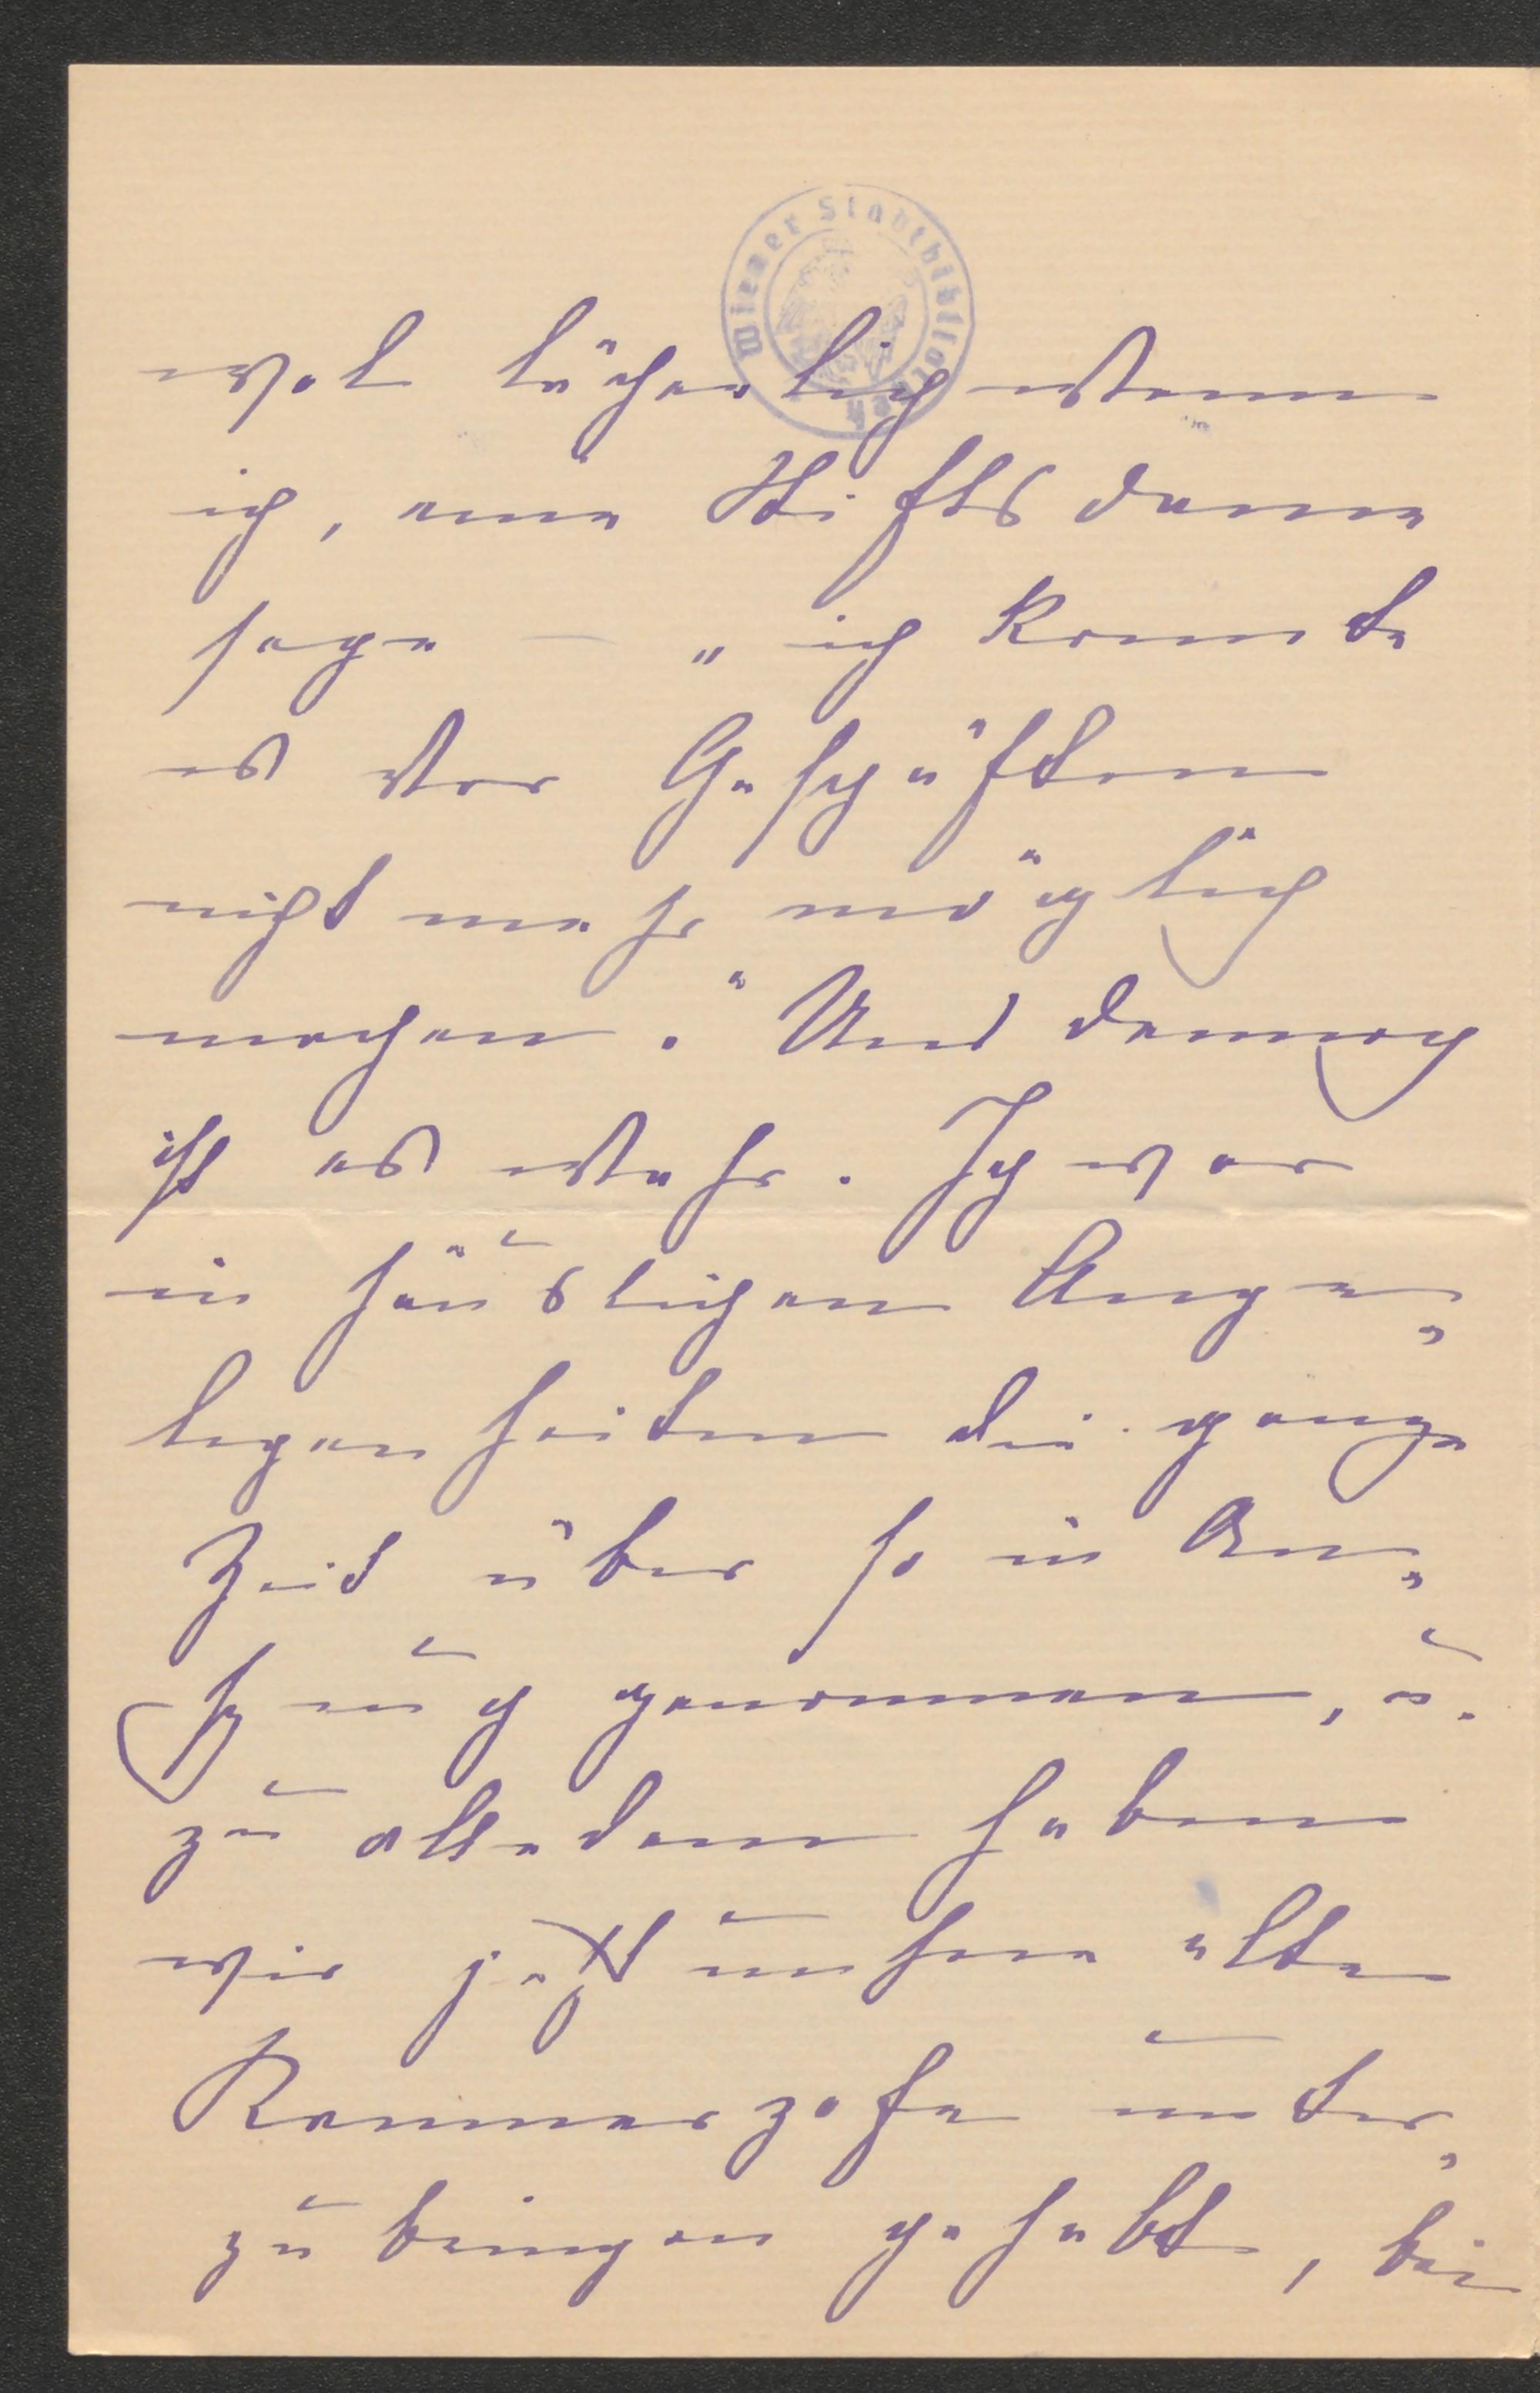 Wiener Stadtbibliothek
wol lächerlich wenn
ich, eine Stiftsdame
sage — „ich konnte
es vor Geschäften
nicht mehr möglich
machen." Und dennoch
ist es wahr. Ich war
in häuslichen Ange„
legenheiten die ganze
Zeit über so in An„
spruch genommen, u.
zu alledem haben
wir jetzt unsere alte
Kammerzofe unter„
zubringen gehabt, bei